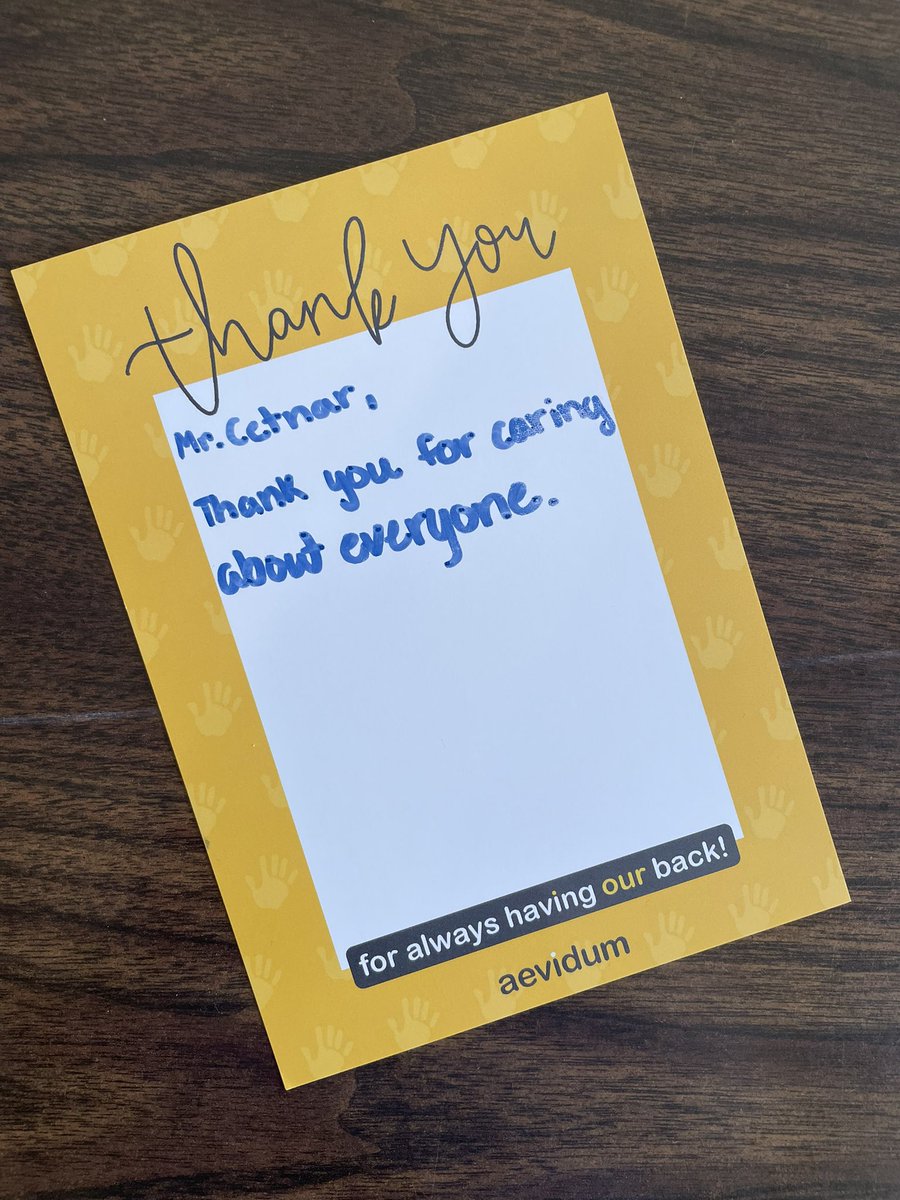 thank you
Mr. Cetnar,
Thank you for caring
about everyone.
for always having our back!
aevidum